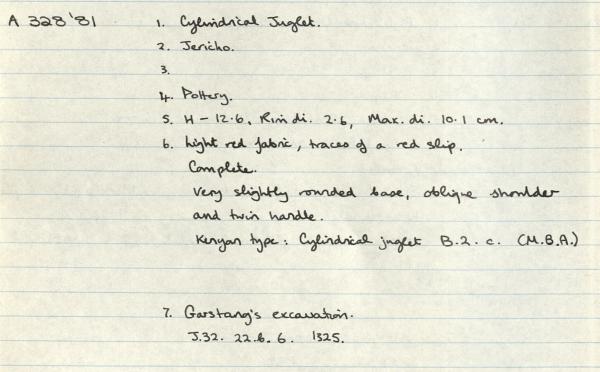 A 328'81 1. Cylindrical Juglet.
2. Jericho.
3.
4. Pottery.
5. H - 12.6, Rim di. 2.6, Max. di. 10.1 cm.
6. Light red fabric, traces of a red slip.
Complete.
Very slightly rounded base, oblique shoulder
and twin handle.
Kenyan type: Cylindrical juglet B.2.c. (M.B.A.)
7. Garstang's excavation.
J.32. 22.6.6. 1325.